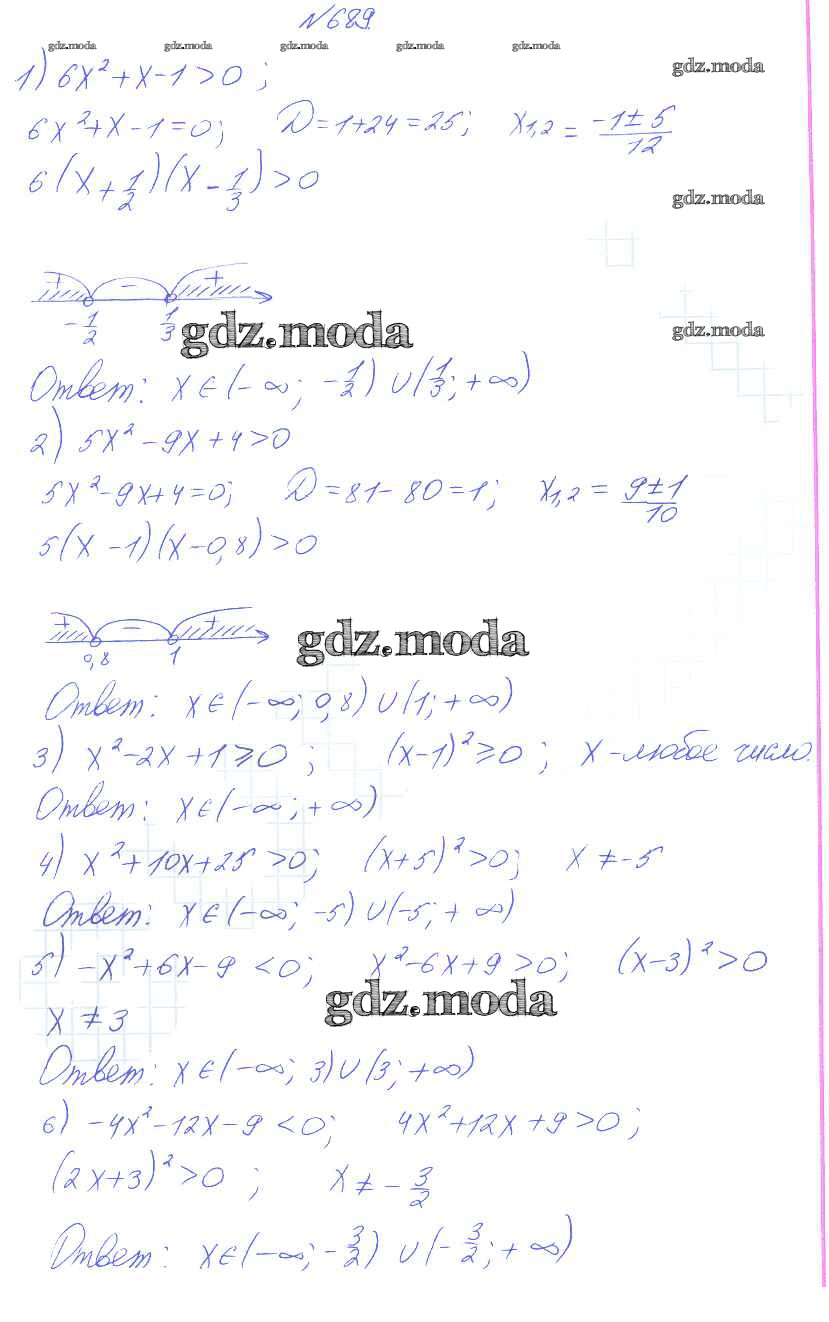 №689
gdz.moda gdz.moda gdz.moda gdz.moda gdz.moda
1) 6x²+x-1>0 ;
gdz.moda
6x²+x-1=0; D=1+24=25; x₁,₂ = (-1±5)/12
6(x+1/2)(x-1/3)>0
gdz.moda
+ - +
-1/2 1/3
gdz.moda
gdz.moda
Ответ: x∈(-∞; -1/2) ∪ (1/3; +∞)
2) 5x²-9x+4>0
5x²-9x+4=0; D=81-80=1; x₁,₂ = (9±1)/10
5(x-1)(x-0,8)>0
+ - +
0,8 1
gdz.moda
Ответ: x∈(-∞; 0,8) ∪ (1; +∞)
3) x²-2x+1⩾0 ; (x-1)²≥0 ; x-любое число.
Ответ: x∈(-∞; +∞)
4) x²+10x+25>0; (x+5)²>0; x≠-5
Ответ: x∈(-∞; -5) ∪ (-5; +∞)
5) -x²+6x-9<0; x²-6x+9>0; (x-3)²>0
gdz.moda
x≠3
Ответ: x∈(-∞; 3) ∪ (3; +∞)
6) -4x²-12x-9<0; 4x²+12x+9>0;
(2x+3)²>0 ; x≠-3/2
Ответ: x∈(-∞; -3/2) ∪ (-3/2; +∞)